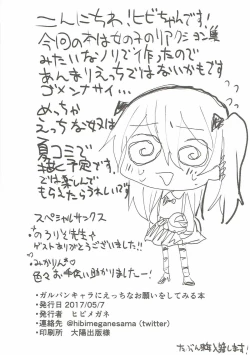 こんにちわ!ヒビちゃんです!
今回の本は女の子のリアクション集
みたいなノリで作ったので
あんまりえっちではないかもです
ゴメンナサイ…
めっちゃ
えっちな奴は
夏コミで
予定です。
では楽しんで
もらえたらうれしいです
スペシャルサンクス
のろりと先生
ゲストありがとうございました!!
みかりん
色々お手伝い助かりましたー!
・ガルパンキャラにえっちなお願いをしてみる本
・発行日 2017/05/7
・発行者 ヒビメガネ
・連絡先 @hibimeganesama (twitter)
・印刷所 大陽出版様